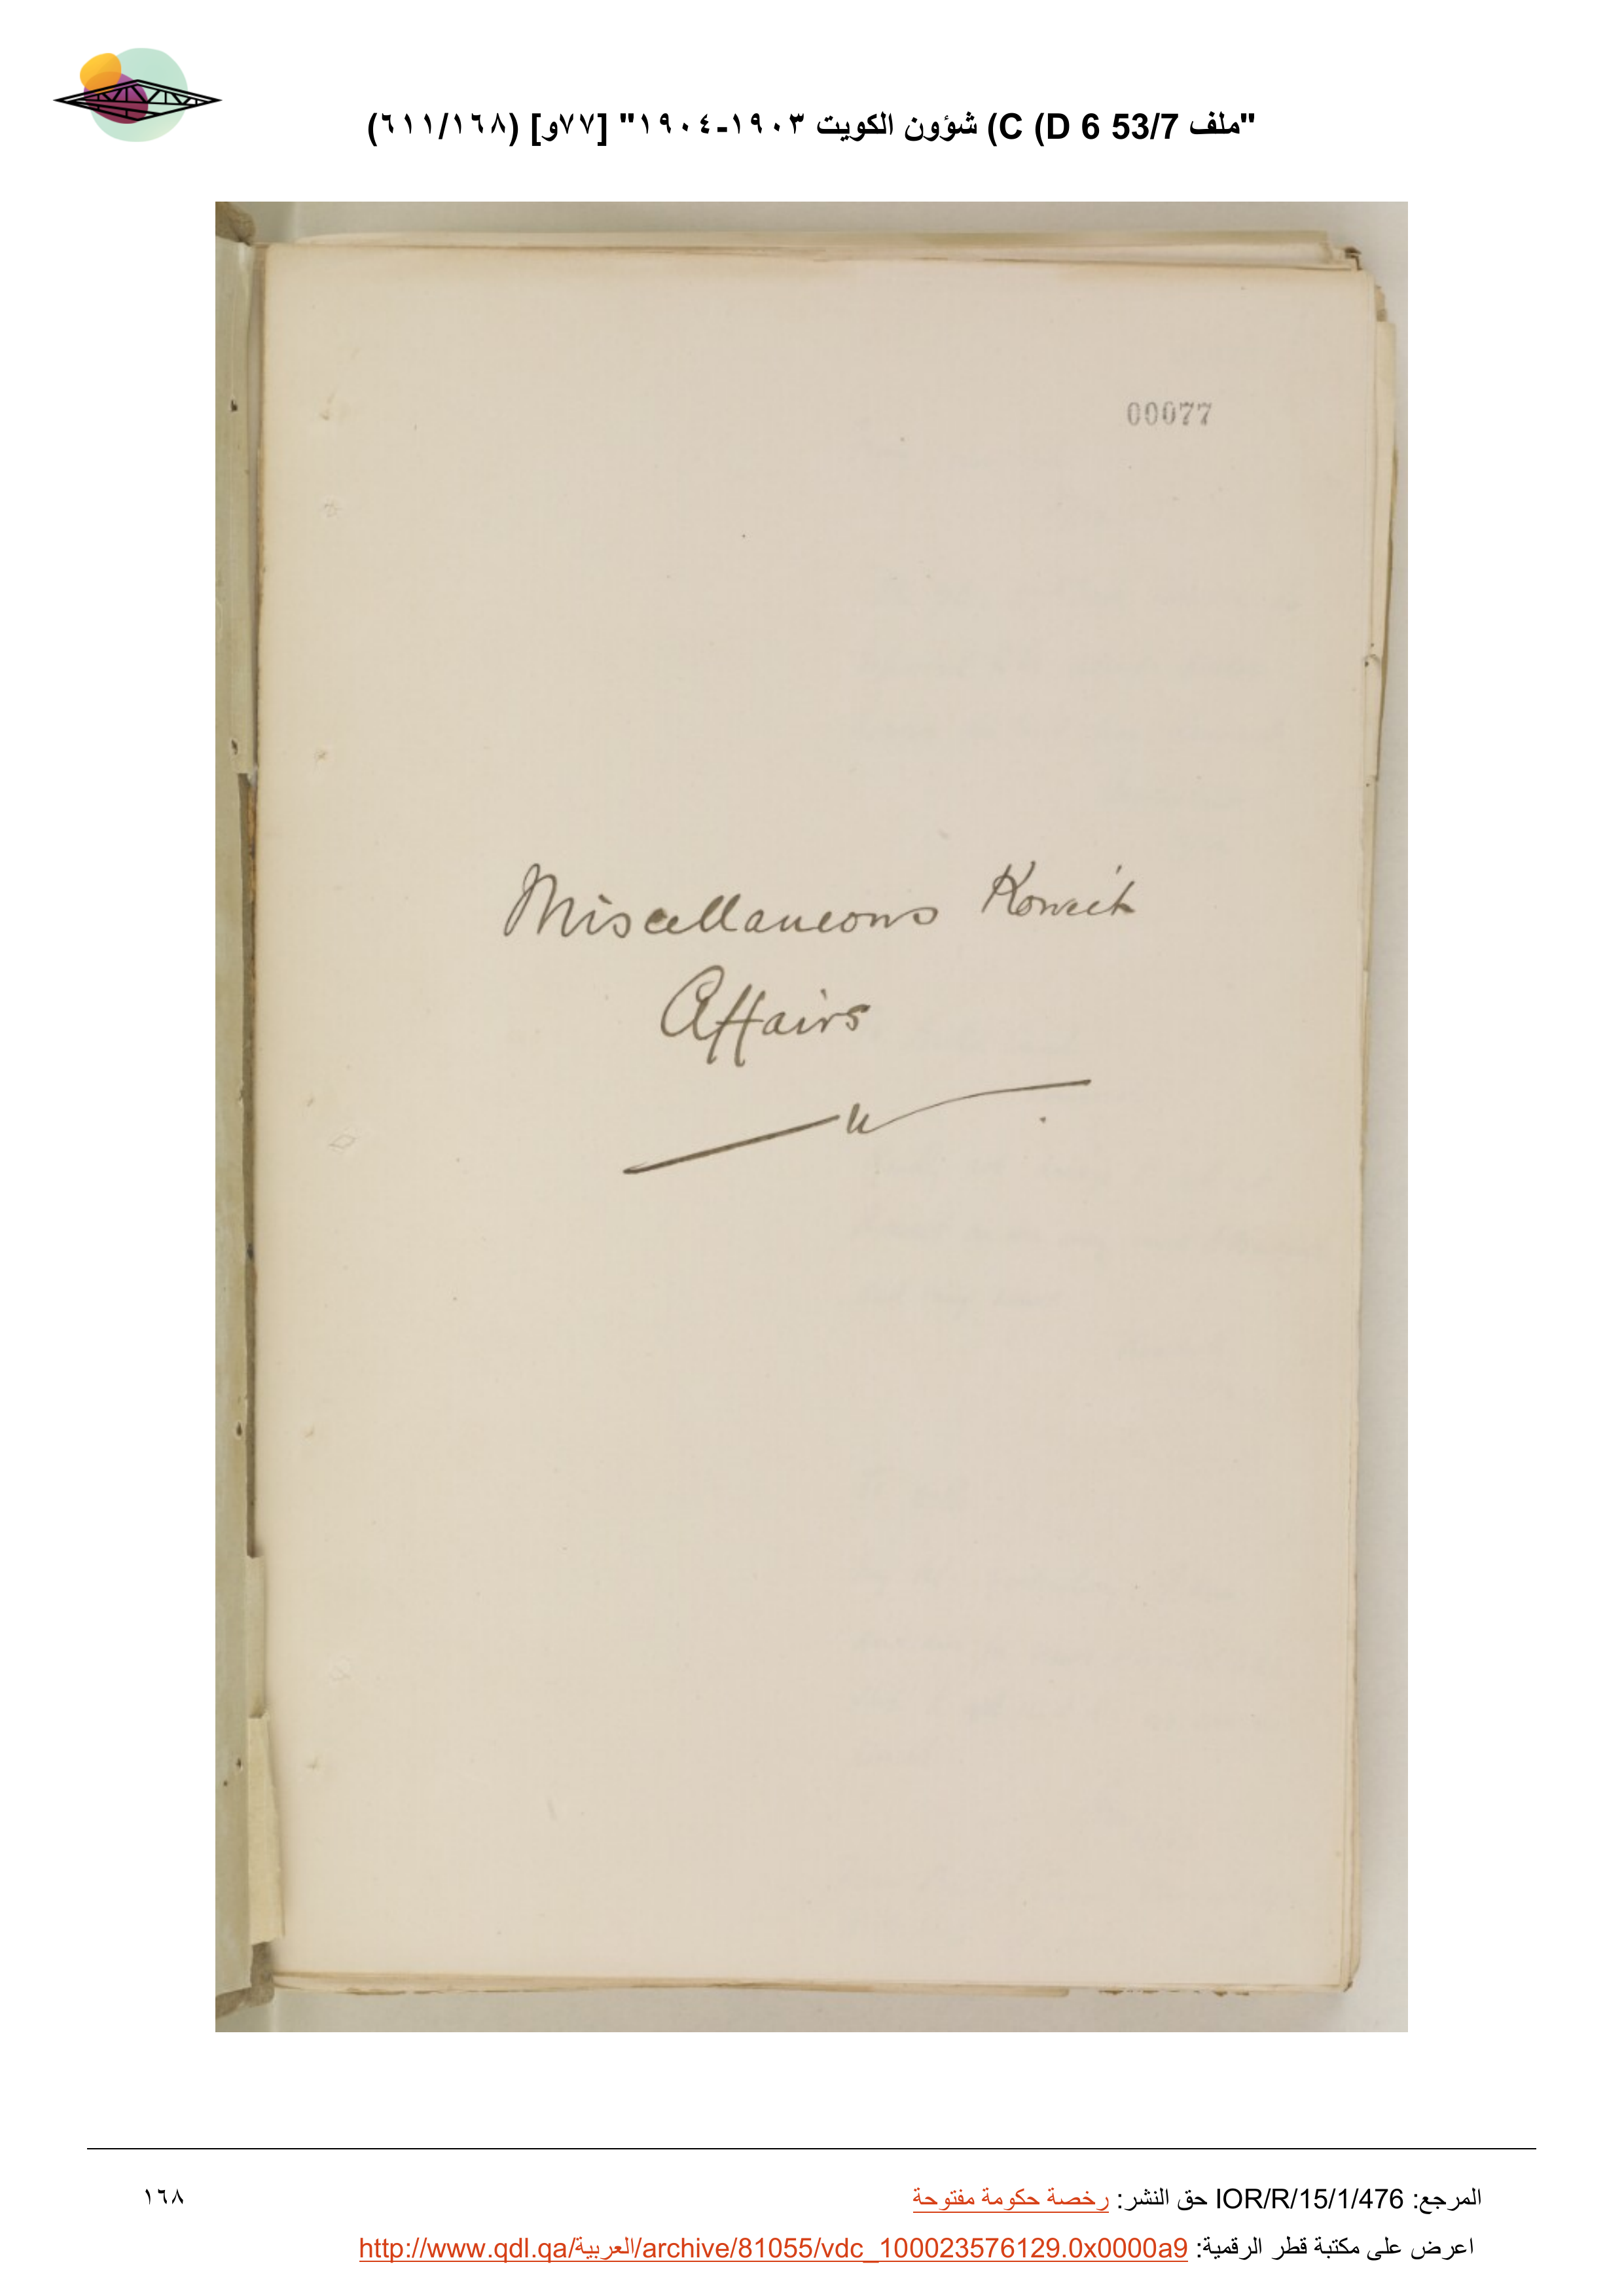 "ملف 53/7 C (D 6) شؤون الكويت ١٩٠٣-١٩٠٤" [٧٧و] (٦١١/١٦٨)
00077
Miscellaneous Koweit
Affairs
المرجع: IOR/R/15/1/476 حق النشر: رخصة حكومة مفتوحة
١٦٨
اعرض على مكتبة قطر الرقمية: http://www.qdl.qa/العربية/archive/81055/vdc_100023576129.0x0000a9